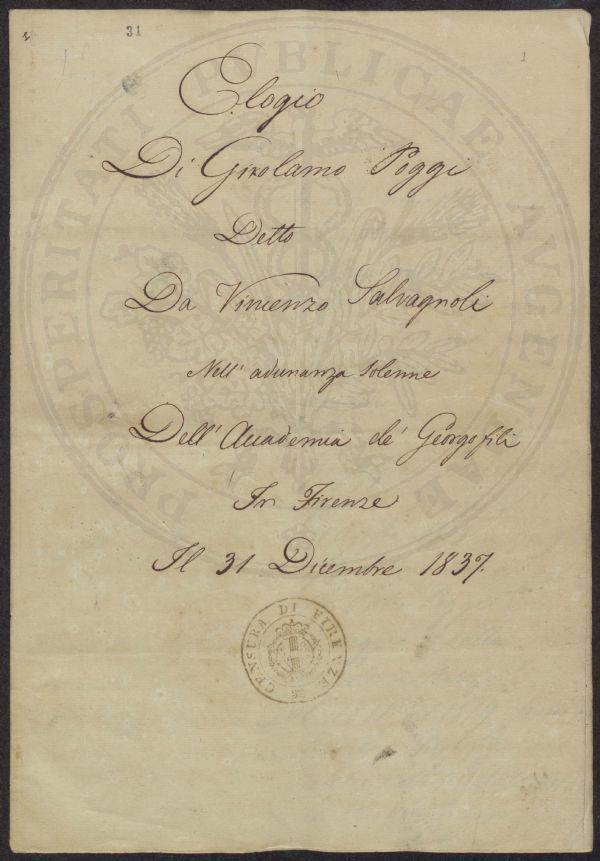 31
1
Elogio
Di Girolamo Poggi
Detto
Da Vincenzo Salvagnoli
Nell' adunanza solenne
Dell' Accademia de' Georgofili
In Firenze
Il 31 Dicembre 1837.
CENSURA DI FIRENZE
PROSPERITATI PUBLICAE AUGENDAE